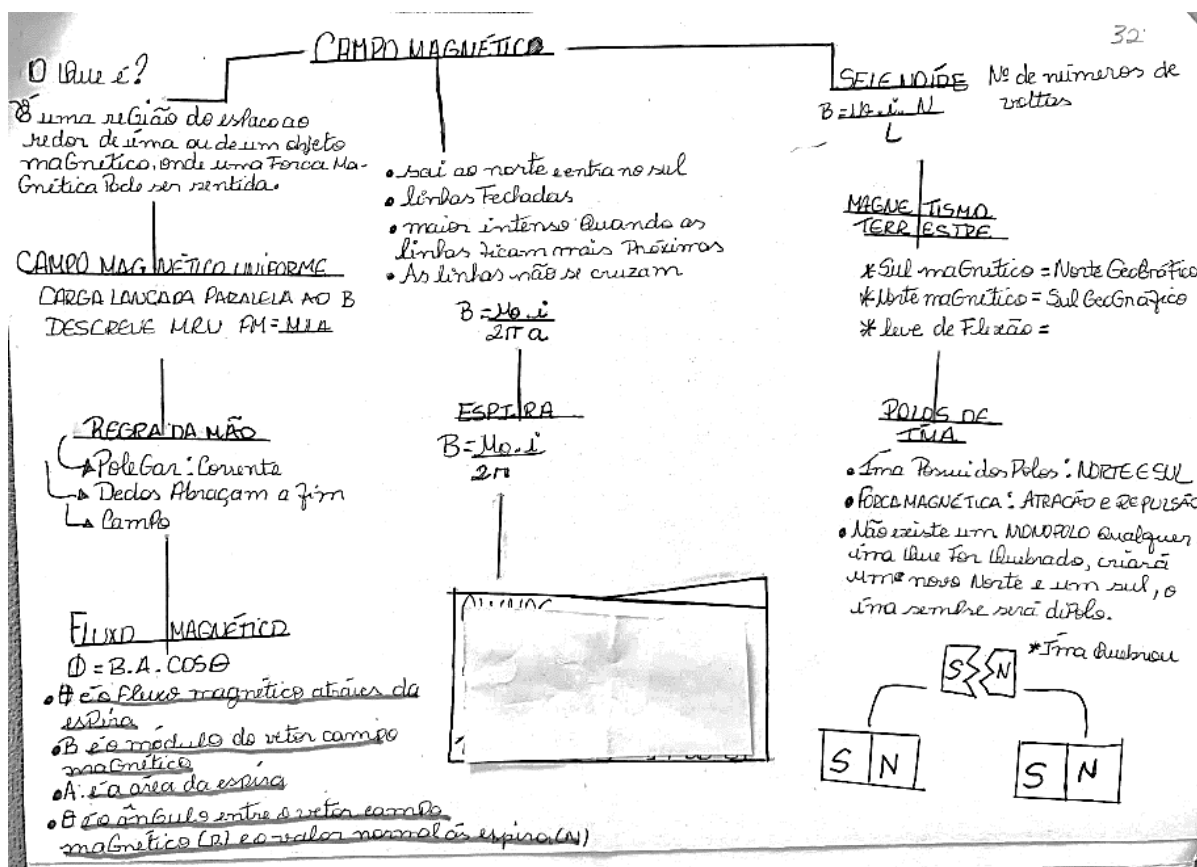 32
CAMPO MAGNÉTICO
O que é?
É uma região do espaco ao
redor de íma ou de um objeto
maGnético, onde uma Forca Ma-
Gnética Pode ser sentida.
CAMPO MAGNÉTICO UNIFORME
CARGA LANCADA PARALELA AO B
DESCREVE MRU FM=
REGRA DA MÃO
PoleGar: Corrente
Dedos Abraçam a fim
Campo
FLUXO MAGNÉTICO
Φ = B.A.COSθ
• é o fluxo magnético atráves da
espira
• B é o módulo do vetor campo
maGnético
• A: é a área da espira
• θ é o ânGulo entre o vetor campo
maGnético (B) e o valor normal ás espira (N)
• sai ao norte e entra no sul
• linhas Fechadas
• maior intenso Quando as
linhas ficam mais Próximas
• As linhas não se cruzam
B = μo.i
2π a
ESPIRA
B = μo.i
2r
SELENOÍDE Nº de números de
voltas
B = μo.i.N
L
MAGNETISMO
TERRESTRE
* Sul maGnético = Norte GeoGráfico
* Norte maGnético = Sul GeoGráfico
* leve de Flexão =
POLOS DE
IMA
• Íma Possui dos Polos: NORTE E SUL
• FORCA MAGNÉTICA: ATRACÃO E REPULSÃO
• Não existe um MONOPOLO Qualquer
íma Que For Quebrado, criará
um novo Norte e um sul, o
íma sempre será diPolo.
* Íma Quebrou
S N
S N
S N